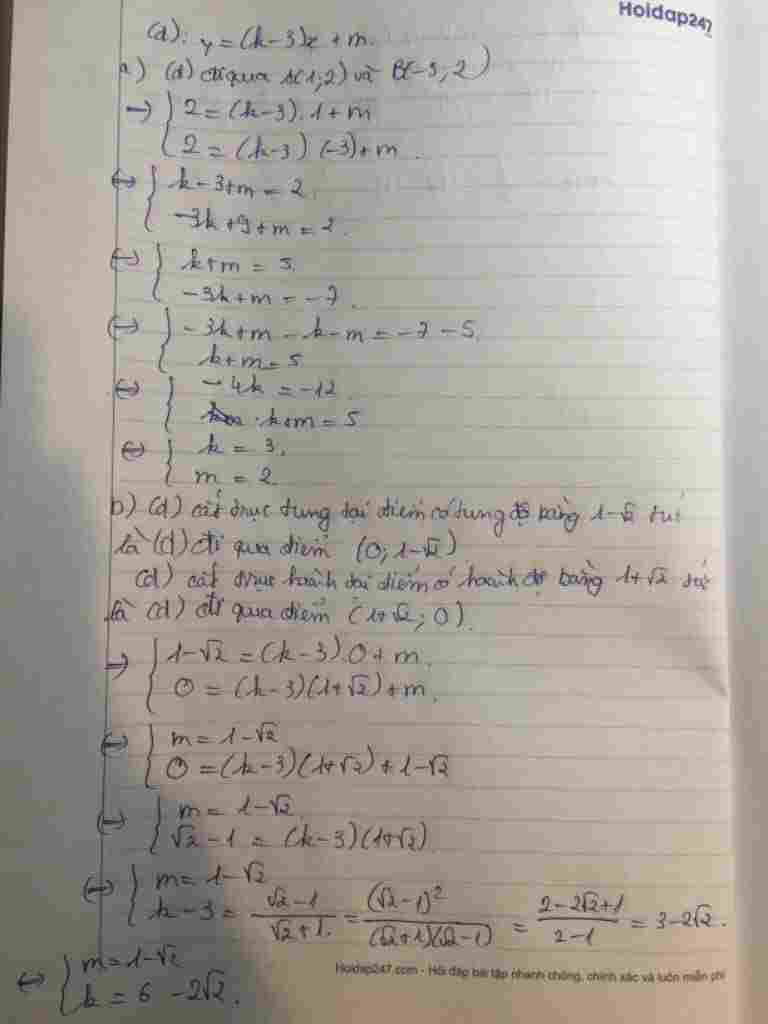 Hoidap247
(d): y = (k-3)x + m.
a) (d) đi qua A(1;2) và B(-3;2)
→ { 2 = (k-3).1+m
2 = (k-3)(-3)+m.
↔ { k-3+m = 2.
-3k+9+m = 2.
↔ { k+m = 5.
-3k+m = -7.
↔ { -3k+m-k-m = -7-5.
k+m = 5
↔ { -4k = -12
k+m = 5
↔ { k = 3.
m = 2
b) (d) cắt trục tung tại điểm có tung độ bằng 1-√2 tức
là (d) đi qua điểm (0; 1-√2)
(d) cắt trục hoành tại điểm có hoành độ bằng 1+√2 tức
là (d) đi qua điểm (1+√2; 0).
→ { 1-√2 = (k-3).0+m.
0 = (k-3)(1+√2)+m.
↔ { m = 1-√2
0 = (k-3)(1+√2)+1-√2
↔ { m = 1-√2.
√2-1 = (k-3)(1+√2)
↔ { m = 1-√2
k-3 = (√2-1)/(√2+1) = (√2-1)²/((√2+1)(√2-1)) = (2-2√2+1)/(2-1) = 3-2√2.
↔ { m = 1-√2
k = 6-2√2.
Hoidap247.com - Hỏi đáp bài tập nhanh chóng, chính xác và luôn miễn phí